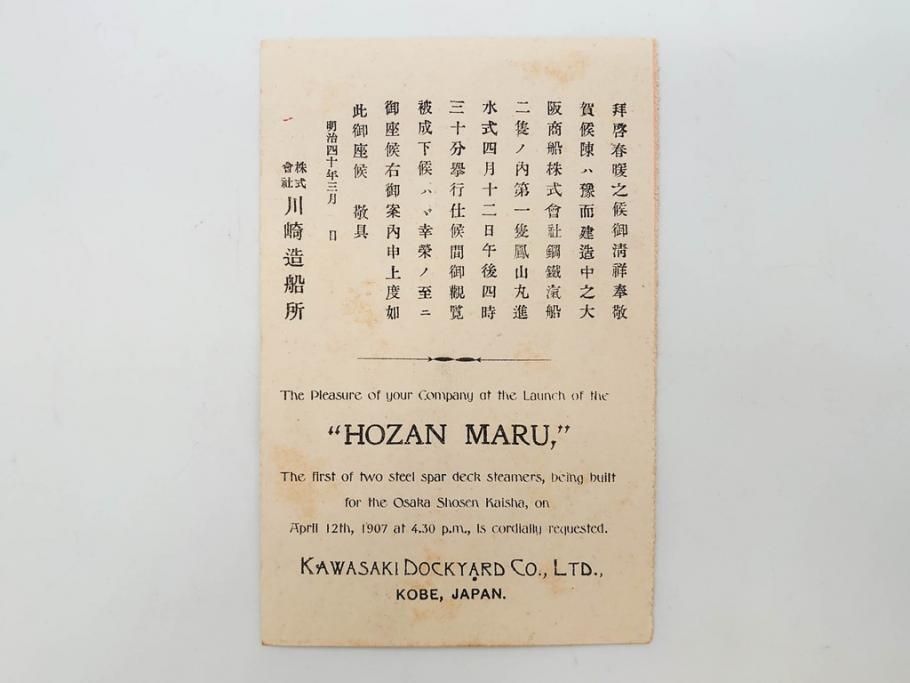 拜啓春暖之候御淸祥奉敬
賀候陳ハ豫而建造中之大
阪商船株式會社鋼鐵滊船
二隻ノ內第一隻鳳山丸進
水式四月十二日午後四時
三十分擧行仕候間御觀覽
被成下候ハヾ幸榮ノ至ニ
御座候右御案內申上度如
此御座候 敬具
明治四十年三月 日
株式會社 川崎造船所
The Pleasure of your Company at the Launch of the
“HOZAN MARU,”
The first of two steel spar deck steamers, being built
for the Osaka Shosen Kaisha, on
April 12th, 1907 at 4.30 p.m., is cordially requested.
KAWASAKI DOCKYARD CO., LTD.,
KOBE, JAPAN.